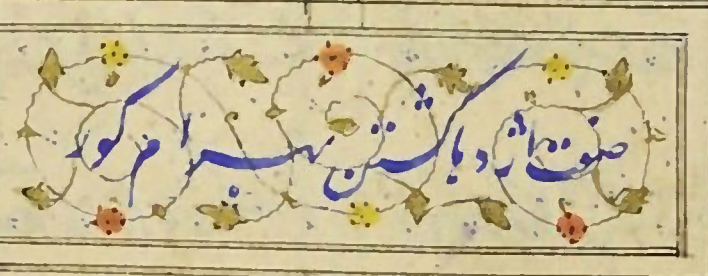 صفت اژدها کشتن بهرام کور